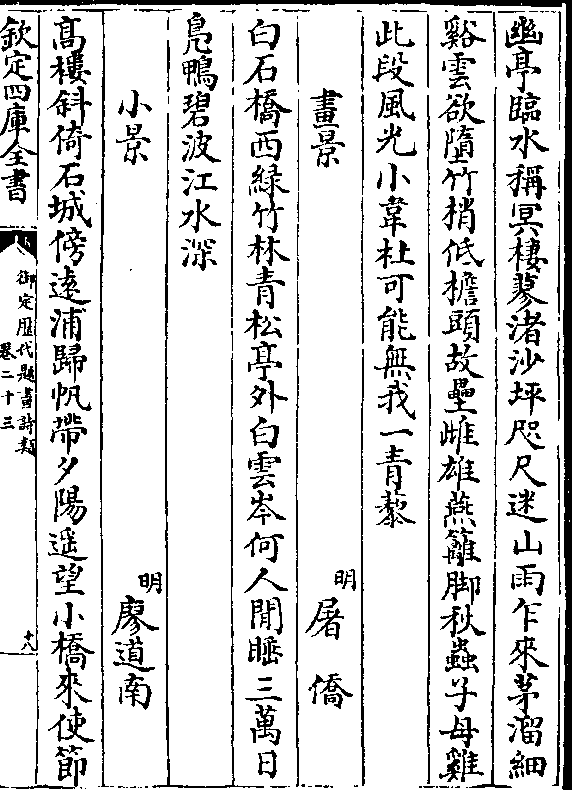 幽亭臨水稱冥棲蓼渚沙坪咫尺迷山雨乍來茅溜細
谿雲欲墮竹梢低檐頭故壘雌雄燕籬脚秋蟲子母雞
此段風光小韋杜可能無我一青藜
畫景 明 屠僑
白石橋西緑竹林青松亭外白雲岑何人閒睡三萬日
鳬鴨碧波江水深
小景 明 廖道南
髙樓斜倚石城傍逺浦歸帆帶夕陽遥望小橋來使節
欽定四庫全書
御定歴代題畫詩類
卷二十三
十八